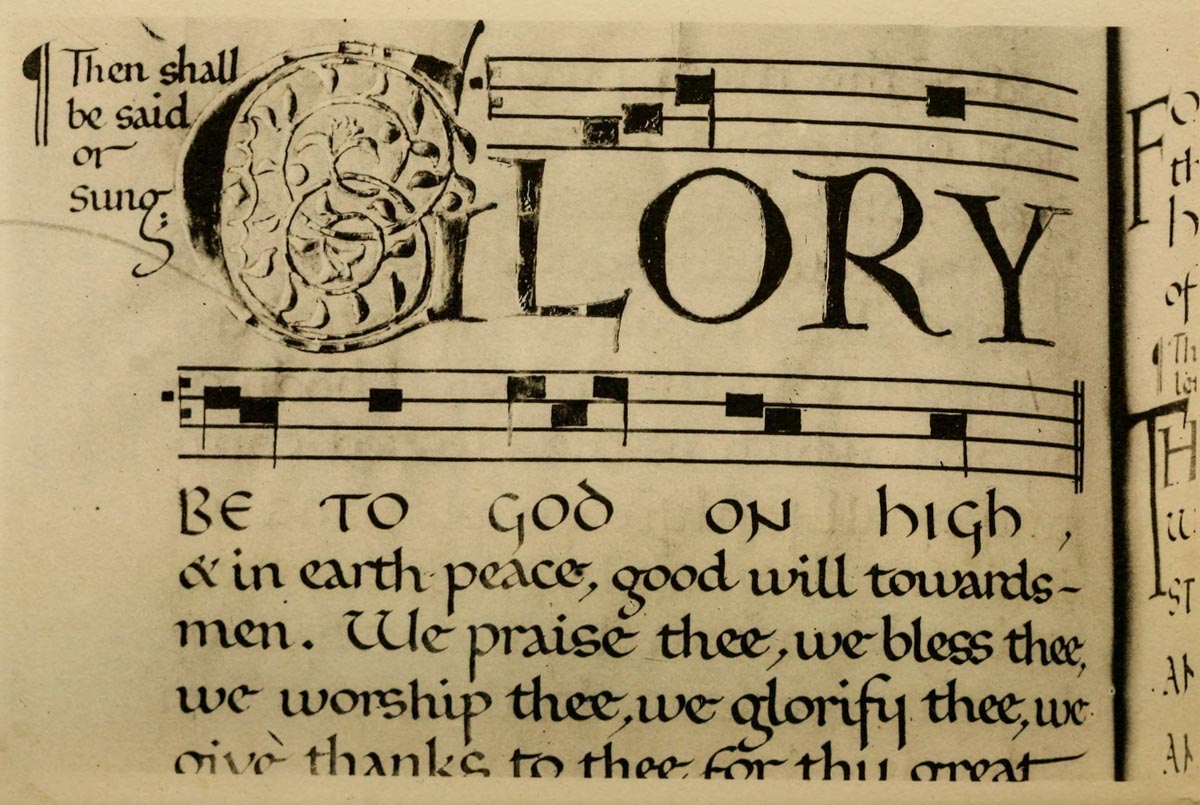 ¶ Then shall
be said
or
sung:
GLORY
BE TO GOD ON HIGH,
& in earth peace, good will towards-
men. We praise thee, we bless thee,
we worship thee, we glorify thee, we
give thanks to thee for thy great
of